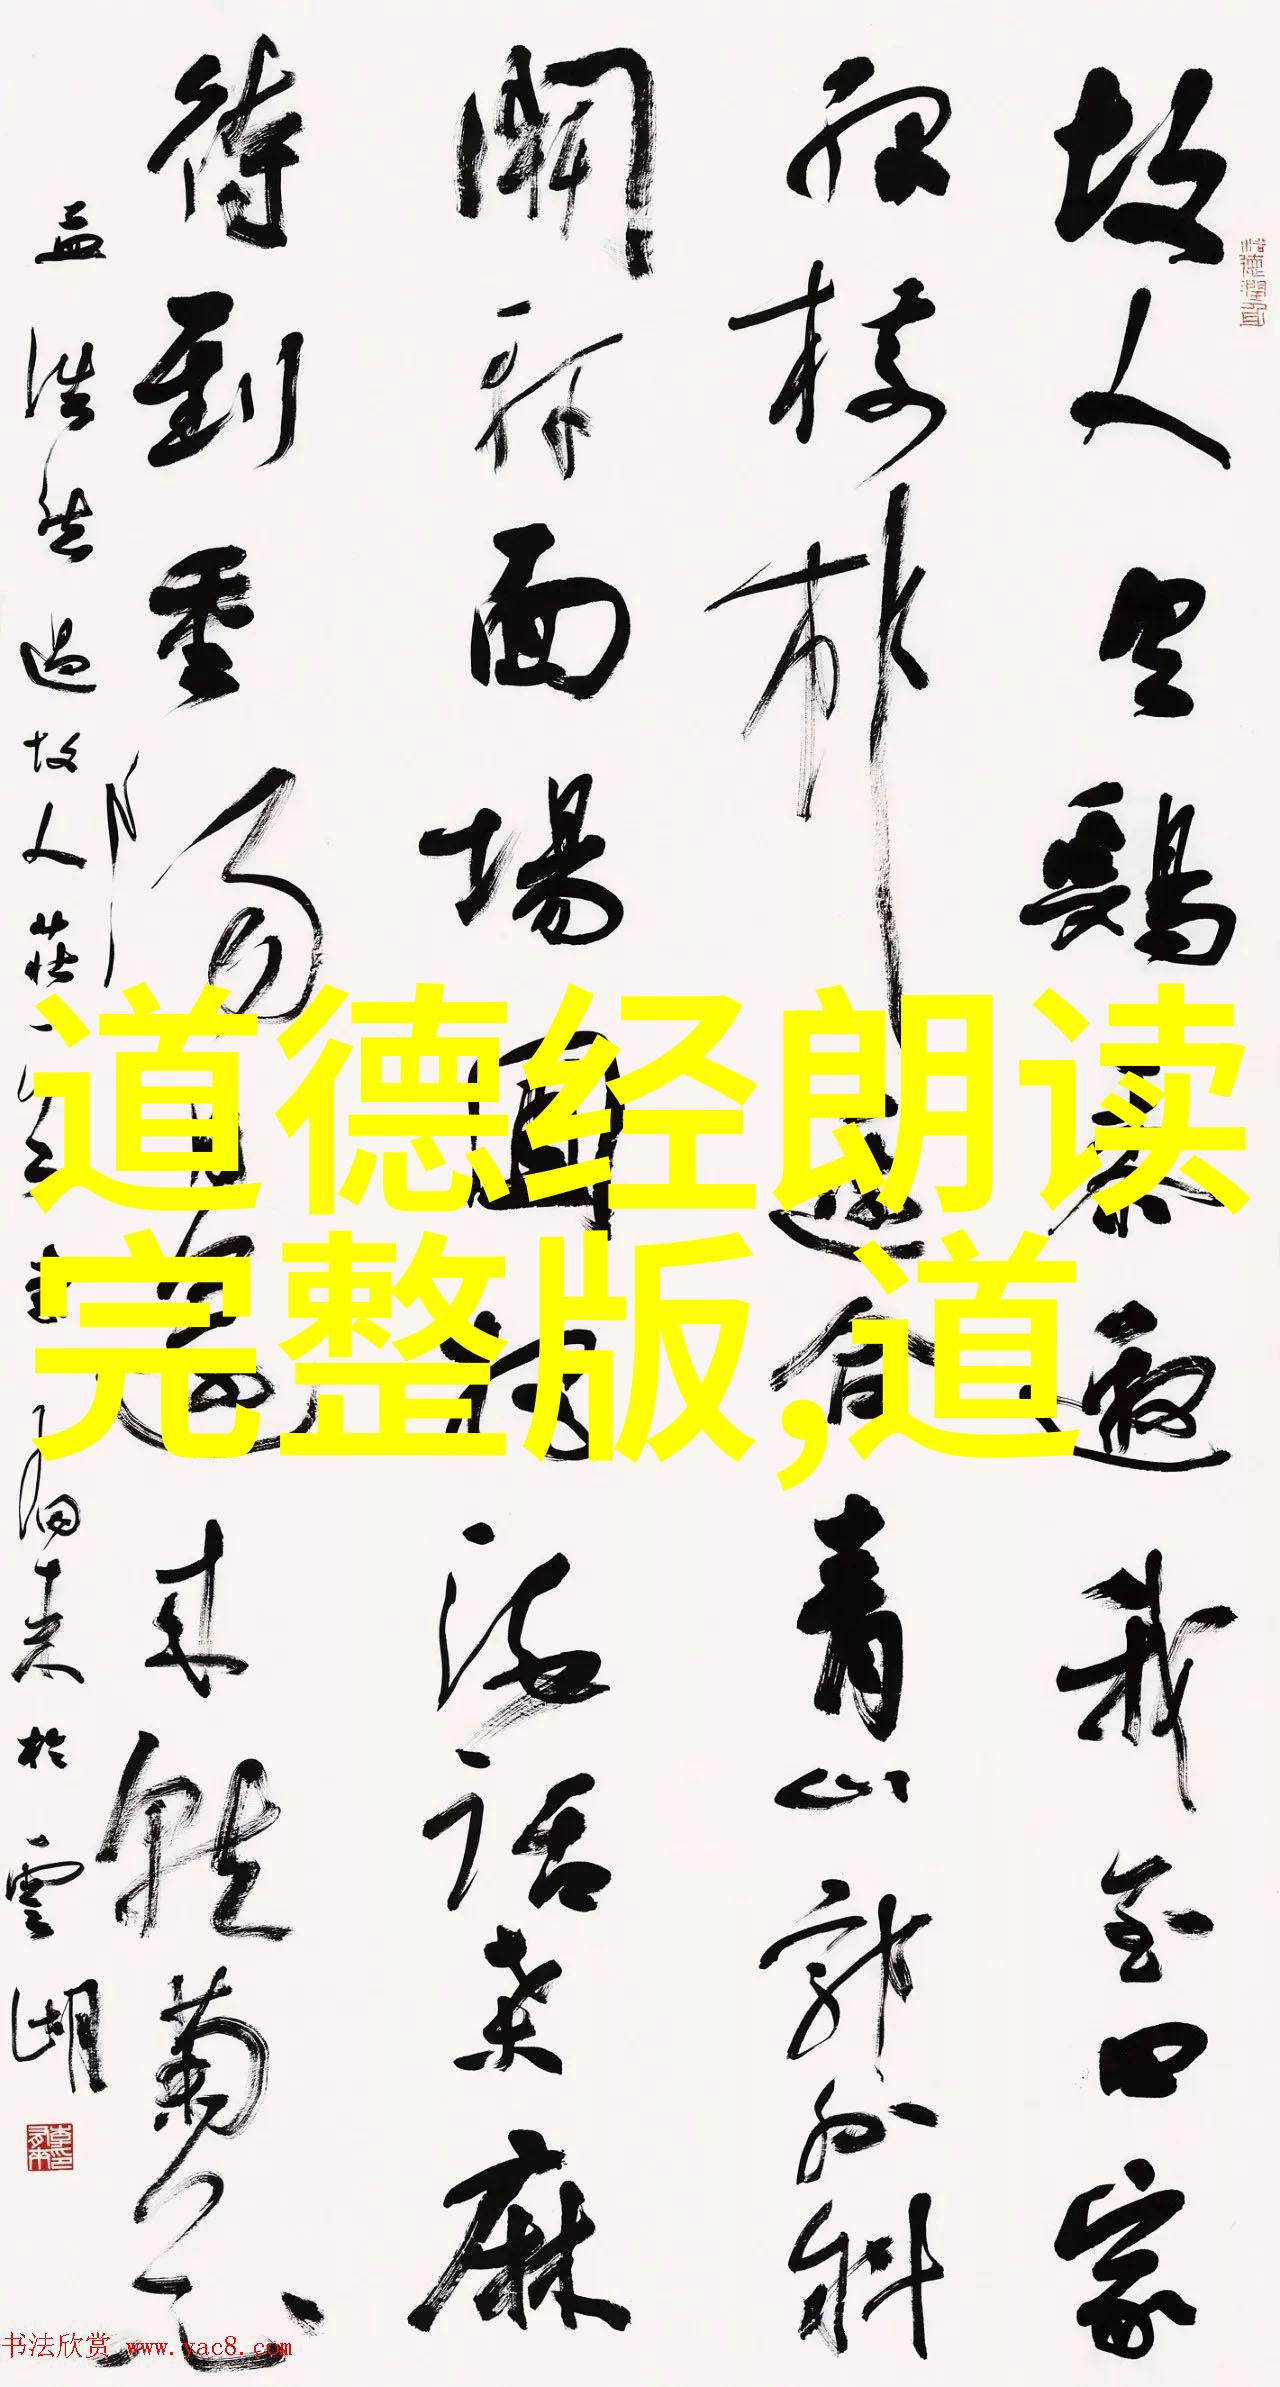 故人具鷄黍邀我至田家
绿樹村邊合青山郭外斜
開軒面場圃把酒話桑麻
待到重陽日還来就菊花
孟浩然過故人莊一首
来於雲湖
道德经朗读
完整版,道
书法欣赏 www.yac8.com